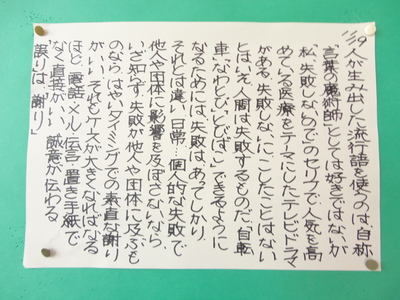 11/19 人が生み出した流行語を使うのは、自称
「言葉の魔術師」としては好きではないが
「私、失敗しないので」のセリフで人気を高
めている医療をテーマにしたテレビドラマ
がある。失敗しないにこしたことはない
とはいえ、人間は失敗するものだ。自転
車、なわとび、とびばこ、できるように
なるためには、失敗はあってしかり。
それとは違い、日常…個人的な失敗で
他人や団体に影響を及ぼさないなら、
いざ知らず、失敗が他人や団体に及ぶも
のならば、はやいタイミングでの素直な謝り
がいい。それもケースが大きくなればなる
ほど、電話・メール・伝言・置き手紙で
なく直接がいい。誠意が伝わる。
「誤り」は、「謝り」